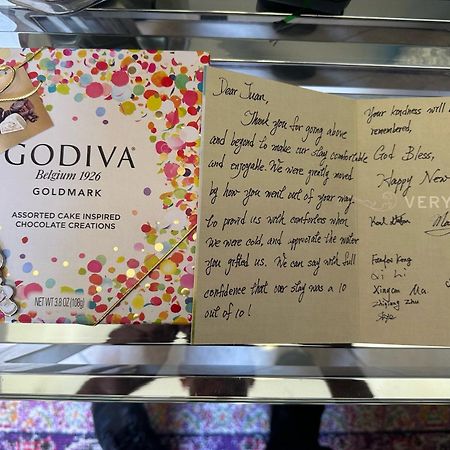 GODIVA
Belgium 1926
GOLDMARK
ASSORTED CAKE INSPIRED
CHOCOLATE CREATIONS
NET WT 3.8 OZ (108g)
Dear Juan,
Thank you for going above
and beyond to make our stay comfortable
and enjoyable. We were greatly moved
by how you went out of your way
to provid us with comforters when
we were cold, and appreciate the water
you gifted us. We can say with full
confidence that our stay was a 10
out of 10!
Your kindness will
remembered,
God Bless,
Happy New
VERY
Qi Li
Xingan Ma
Zhijiang Zhu